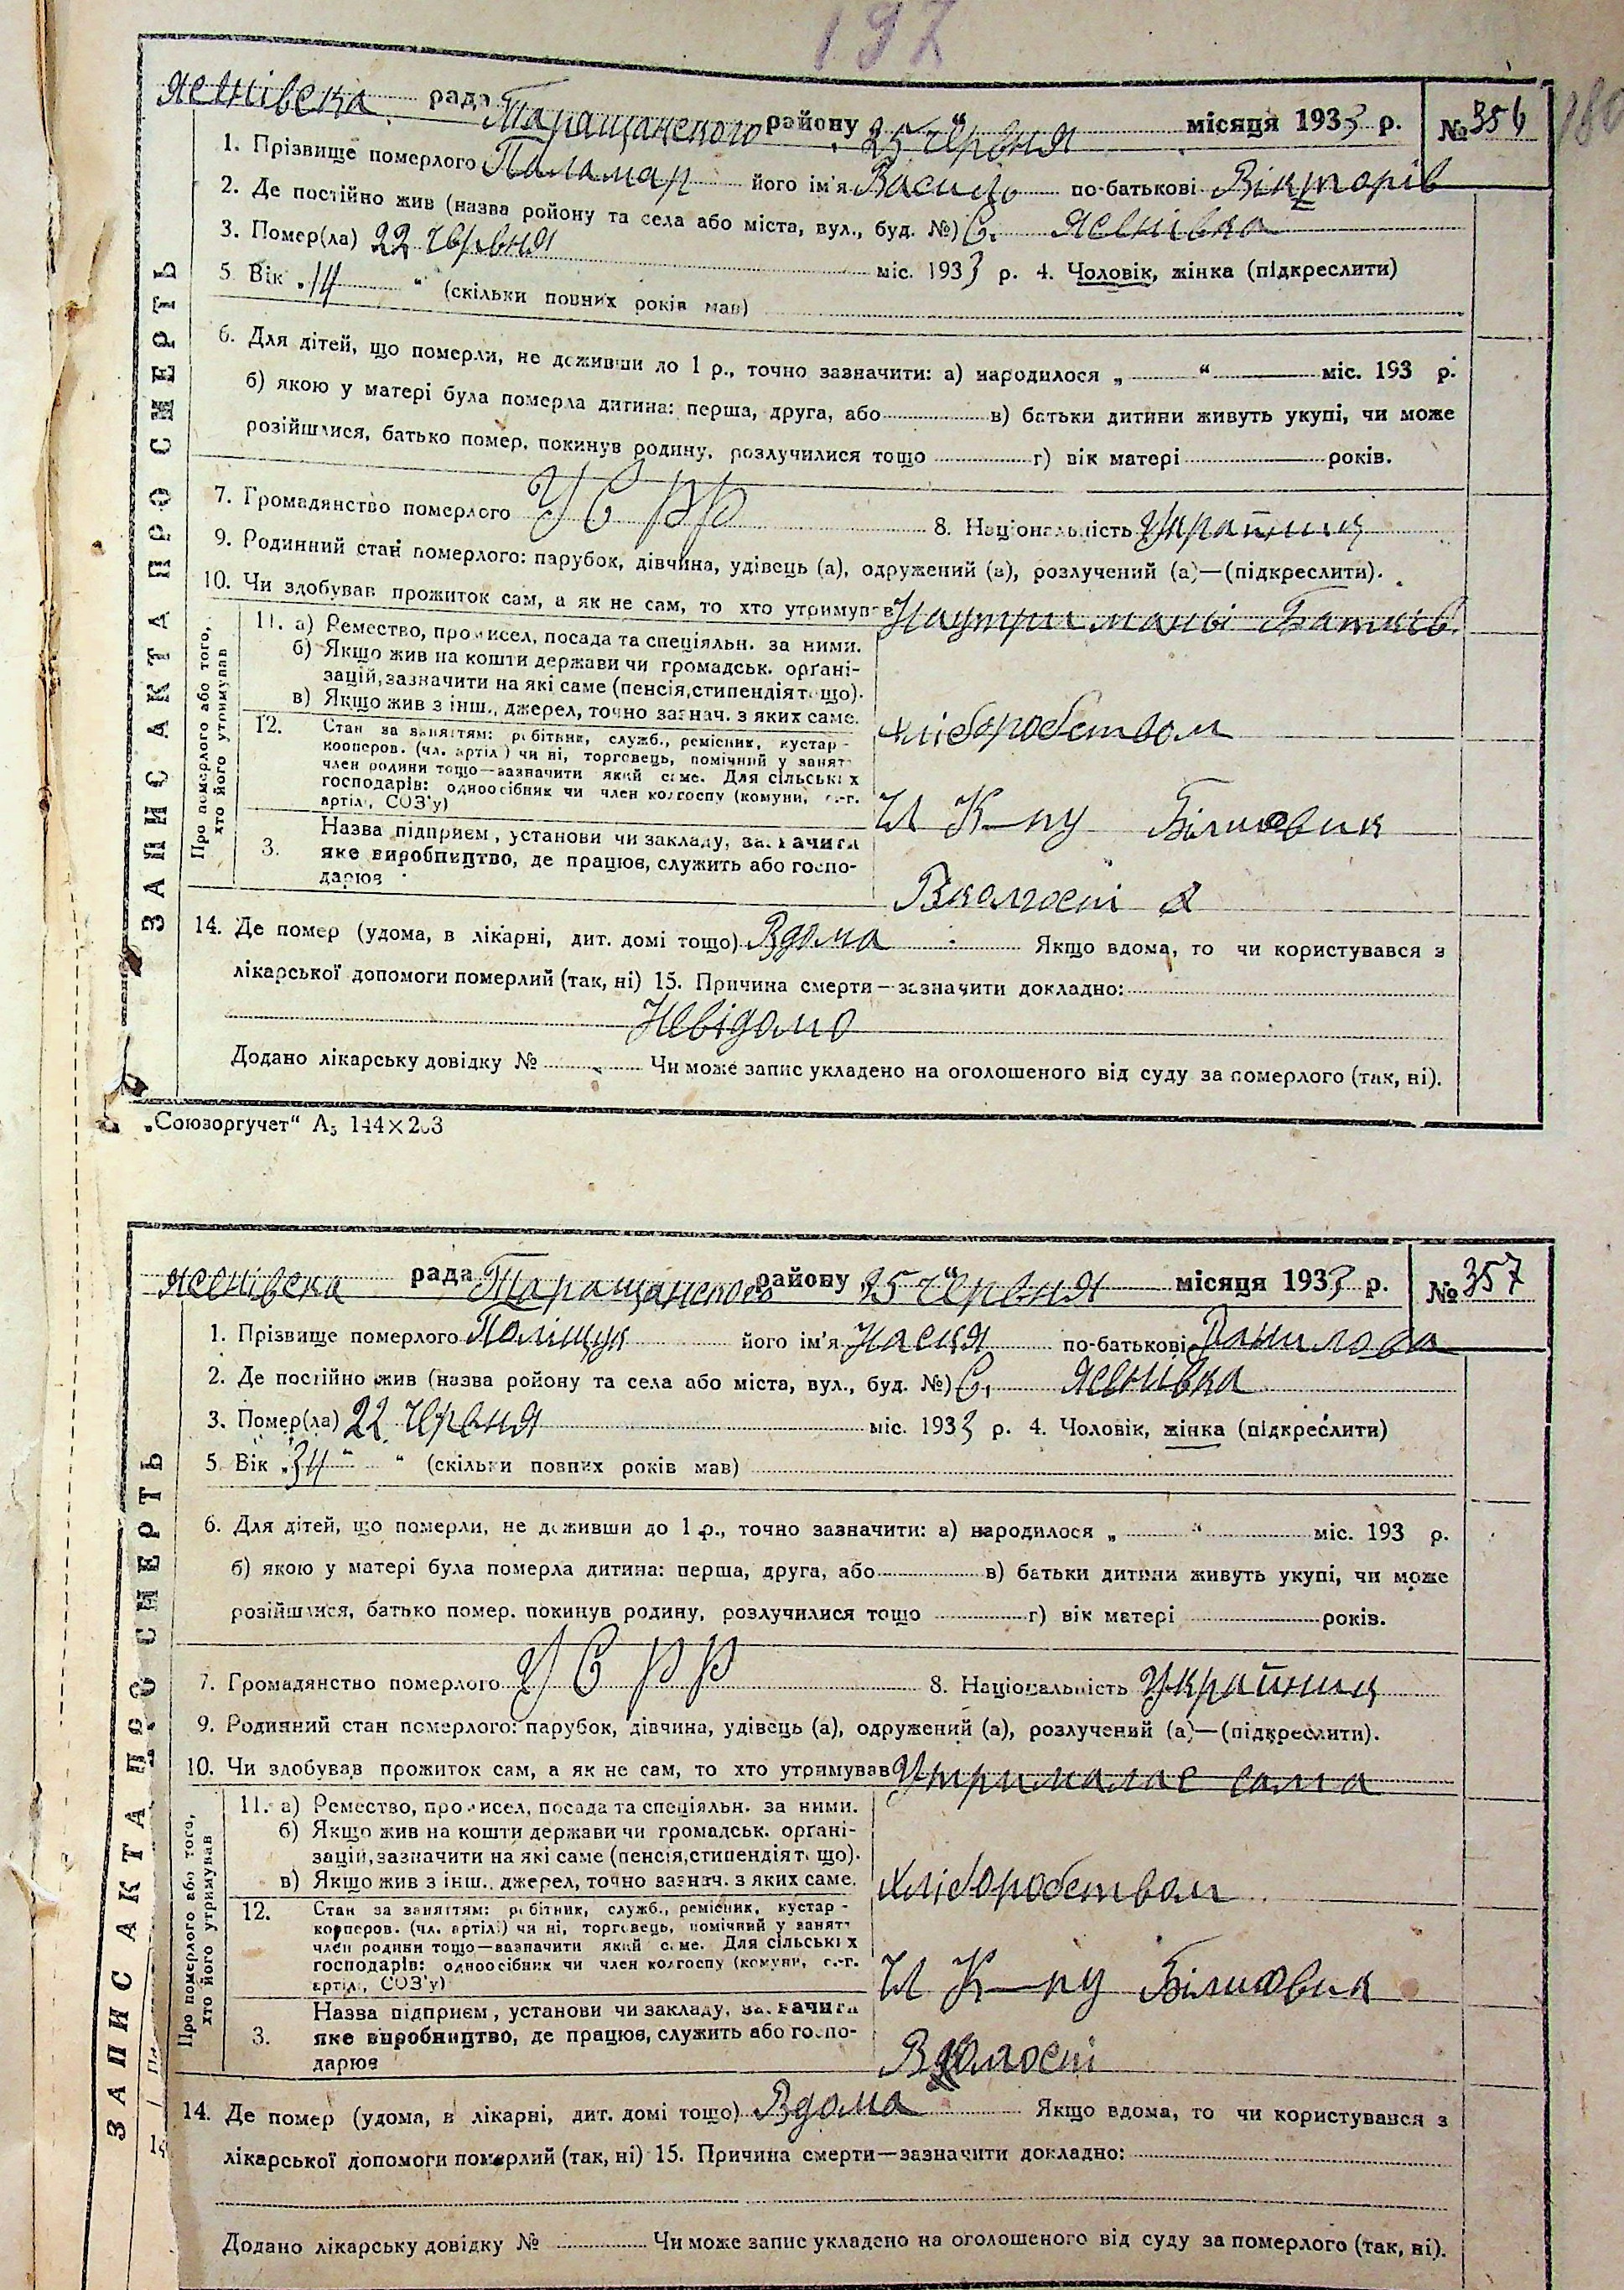 197
180
Яснівска рада Таращанского району „25 червня“ місяця 1933 р. № 356
1. Прізвище померлого Паламар його ім'я Василь по-батькові Вікторів
2. Де постійно жив (назва ройону та села або міста, вул., буд. №) С. Яснівка
3. Помер(ла) 22 червня міс. 1933 р. 4. Чоловік, жінка (підкреслити)
5. Вік „14“ (скільки повних років мав)
6. Для дітей, що померли, не доживши до 1 р., точно зазначити: а) народилося „ “ міс. 193 р.
б) якою у матері була померла дитина: перша, друга, або в) батьки дитини живуть укупі, чи може
розійшлися, батько помер, покинув родину, розлучилися тощо г) вік матері років.
7. Громадянство померлого УСРР 8. Національність Україниц
9. Родинний стан померлого: парубок, дівчина, удівець (а), одружений (а), розлучений (а)—(підкреслити).
10. Чи здобував прожиток сам, а як не сам, то хто утримував Наутримані Батків
Про померлого або того, хто його утримував
11. а) Ремество, промисел, посада та спеціяльн. за ними.
б) Якщо жив на кошти держави чи громадськ. орґані-
зацій, зазначити на які саме (пенсія, стипендія тощо).
в) Якщо жив з інш., джерел, точно зазнач. з яких саме.
хліборобством
12. Стан за заняттям: робітник, служб., ремісник, кустар -
кооперов. (чл. артілі) чи ні, торговець, помічний у занятт
член родини тощо—зазначити який саме. Для сільських
господарів: одноосібник чи член колгоспу (комуни, с.-г.
артілі, СОЗ'у)
Чл К—пу Більшовик
3. Назва підприєм., установи чи закладу, зазначити
яке виробництво, де працює, служить або госпо-
дарює
Вколгоспі
14. Де помер (удома, в лікарні, дит. домі тощо) Вдома Якщо вдома, то чи користувався з
лікарської допомоги померлий (так, ні) 15. Причина смерти—зазначити докладно:
Невідомо
Додано лікарську довідку № Чи може запис укладено на оголошеного від суду за померлого (так, ні).
ЗАПИС АКТА ПРО СМЕРТЬ
„Союзоргучет“ А5 144×203
Яснівска рада Таращанского району „25 червня“ місяця 1933 р. № 357
1. Прізвище померлого Поліщук його ім'я Наскя по-батькові Данилова
2. Де постійно жив (назва ройону та села або міста, вул., буд. №) С. Яснівка
3. Помер(ла) 22 червня міс. 1933 р. 4. Чоловік, жінка (підкреслити)
5. Вік „34“ (скільки повних років мав)
6. Для дітей, що померли, не доживши до 1 р., точно зазначити: а) народилося „ “ міс. 193 р.
б) якою у матері була померла дитина: перша, друга, або в) батьки дитини живуть укупі, чи може
розійшлися, батько помер, покинув родину, розлучилися тощо г) вік матері років.
7. Громадянство померлого УСРР 8. Національність Україниц
9. Родинний стан померлого: парубок, дівчина, удівець (а), одружений (а), розлучений (а)—(підкреслити).
10. Чи здобував прожиток сам, а як не сам, то хто утримував Утрималас сама
Про померлого або того, хто його утримував
11. а) Ремество, промисел, посада та спеціяльн. за ними.
б) Якщо жив на кошти держави чи громадськ. орґані-
зацій, зазначити на які саме (пенсія, стипендія тощо).
в) Якщо жив з інш., джерел, точно зазнач. з яких саме.
хліборобством
12. Стан за заняттям: робітник, служб., ремісник, кустар -
кооперов. (чл. артілі) чи ні, торговець, помічний у занятт
член родини тощо—зазначити який саме. Для сільських
господарів: одноосібник чи член колгоспу (комуни, с.-г.
артілі, СОЗ'у)
Чл К—пу Більшовик
3. Назва підприєм., установи чи закладу, зазначити
яке виробництво, де працює, служить або госпо-
дарює
Вколгоспі
14. Де помер (удома, в лікарні, дит. домі тощо) Вдома Якщо вдома, то чи користувався з
лікарської допомоги померлий (так, ні) 15. Причина смерти—зазначити докладно:
Додано лікарську довідку № Чи може запис укладено на оголошеного від суду за померлого (так, ні).
ЗАПИС АКТА ПРО СМЕРТЬ